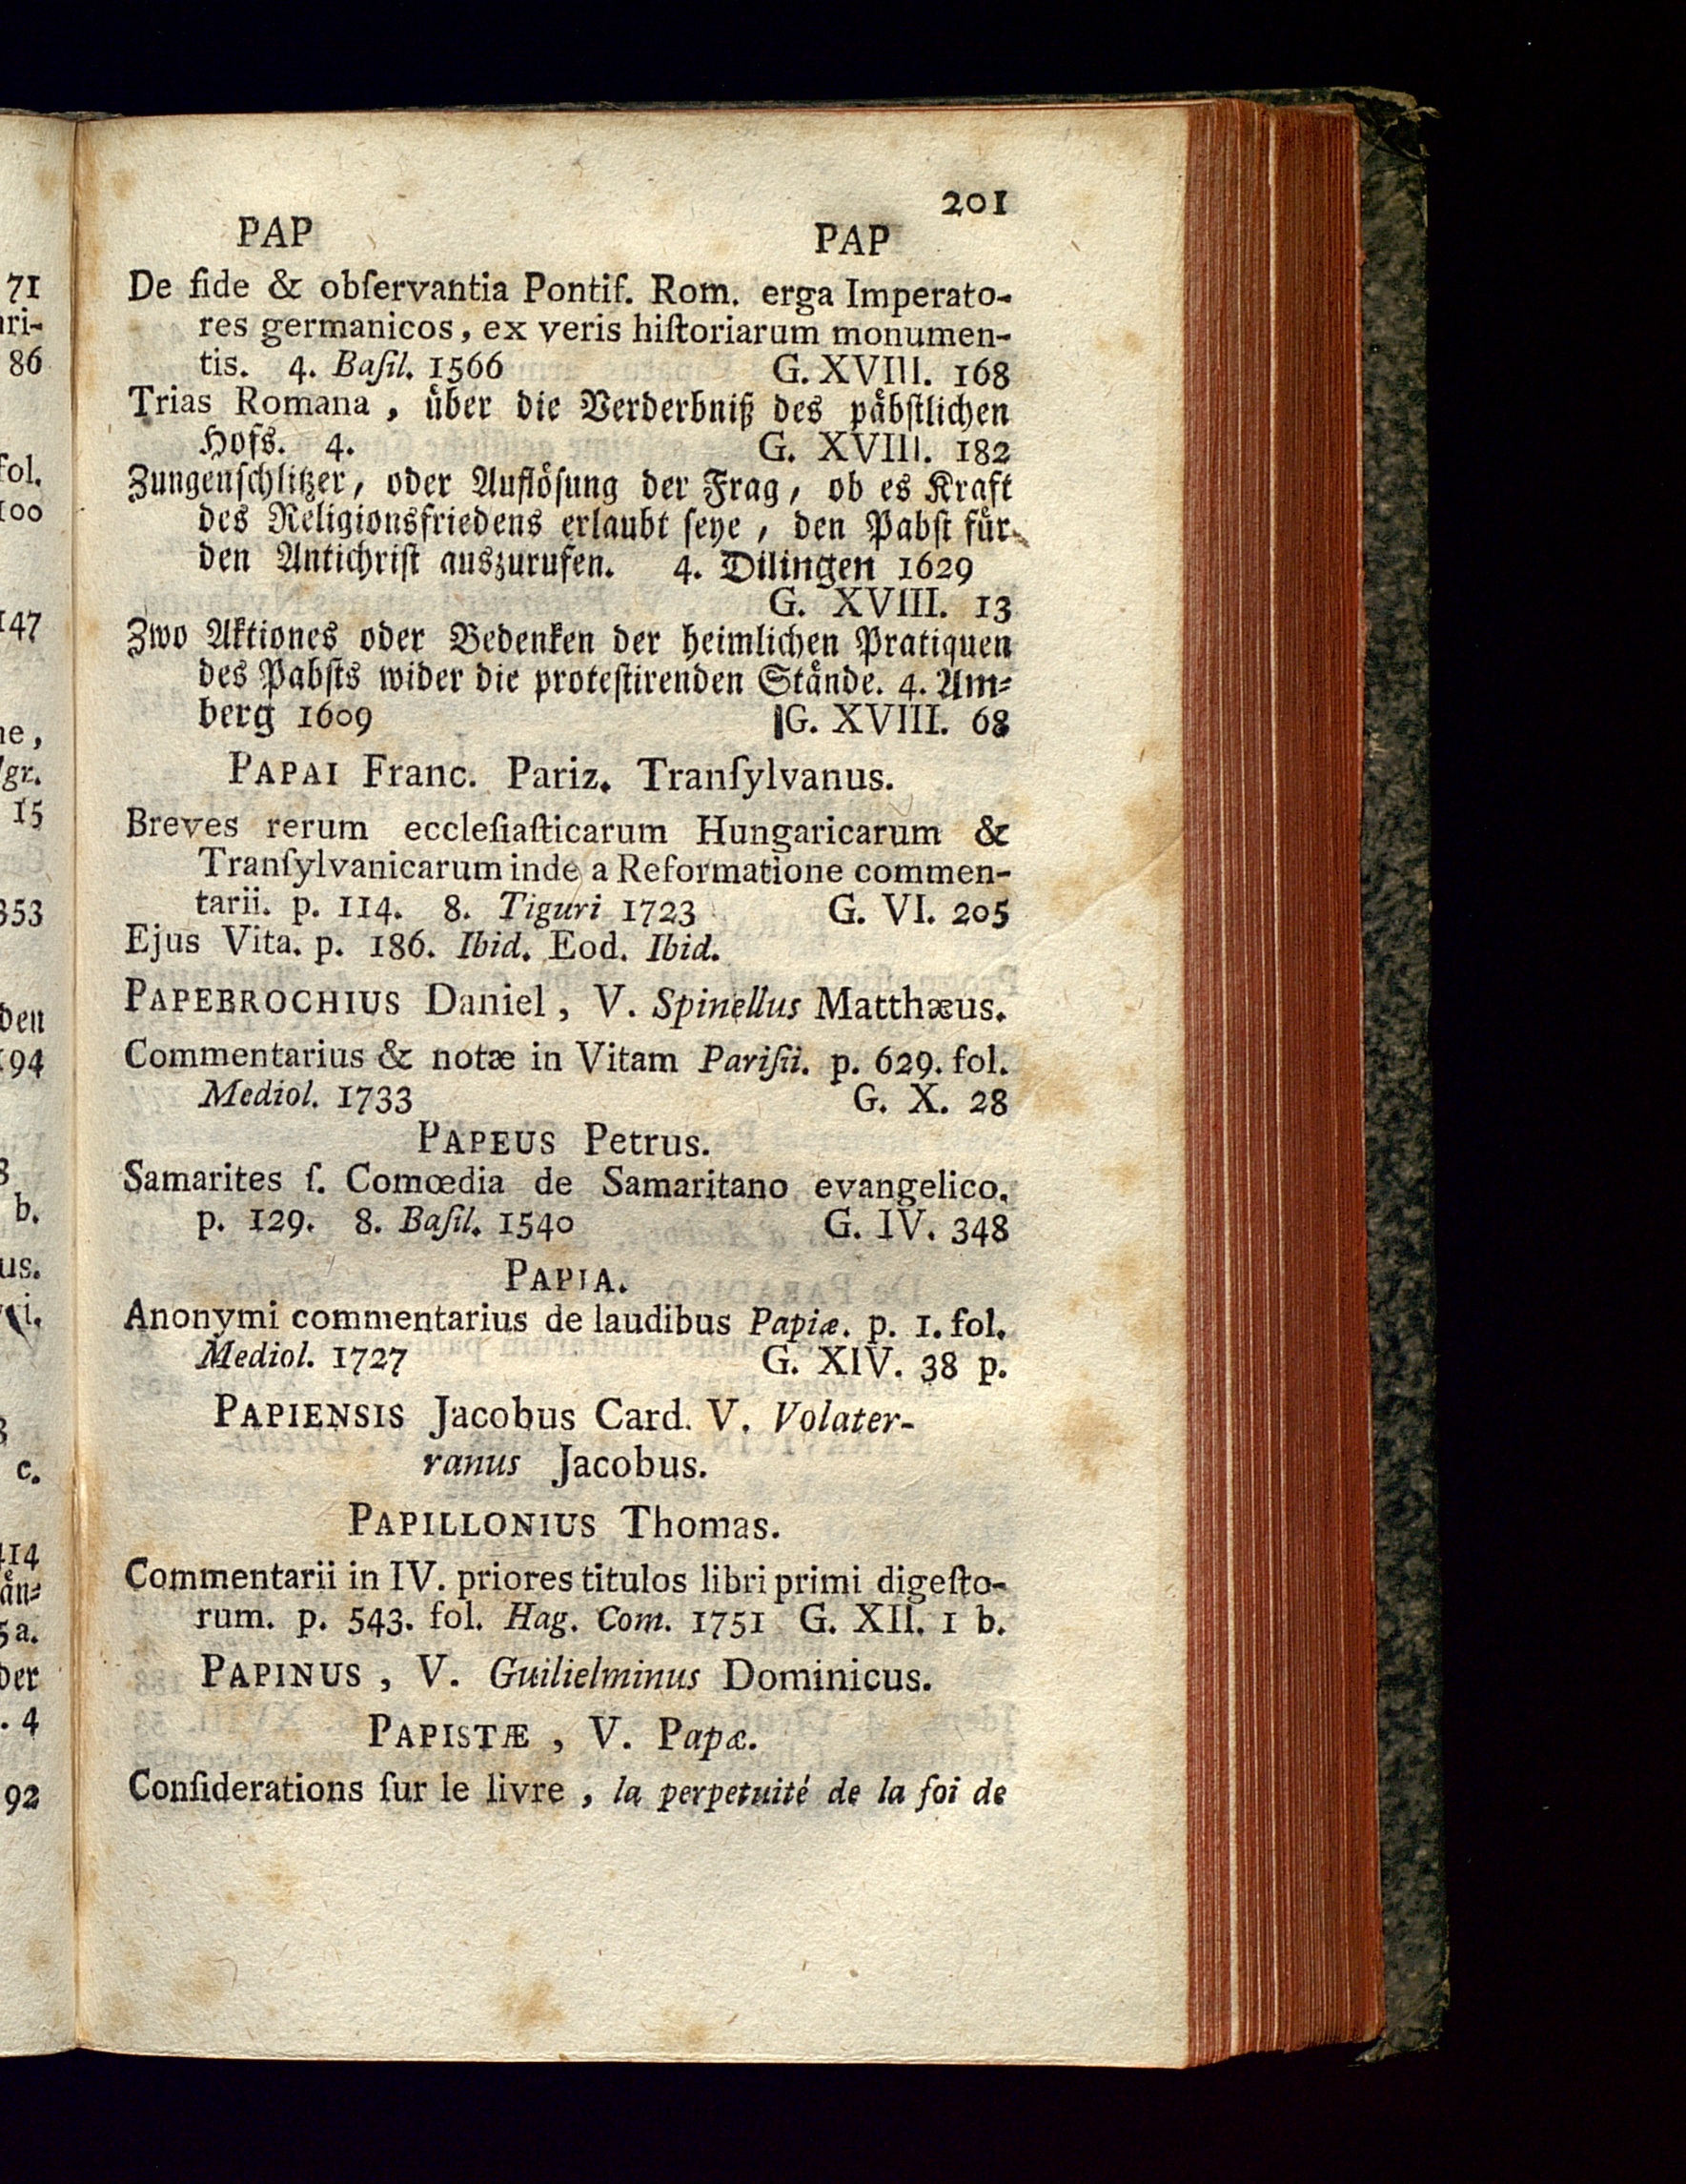 201
PAP PAP
De fide & obſervantia Pontif. Rom. erga Imperato-
res germanicos, ex veris hiſtoriarum monumen-
tis. 4. Baſil. 1566 G. XVIII. 168
Trias Romana, uͤber die Verderbniß des paͤbſtlichen
Hofs. 4. G. XVIII. 182
Zungenſchlitzer, oder Aufloͤſung der Frag, ob es Kraft
des Religionsfriedens erlaubt ſeye, den Pabſt fuͤr
den Antichriſt auszurufen. 4. Dilingen 1629
G. XVIII. 13
Zwo Aktiones oder Bedenken der heimlichen Pratiquen
des Pabſts wider die proteſtirenden Staͤnde. 4. Am-
berg 1609 G. XVIII. 68
PAPAI Franc. Pariz. Tranſylvanus.
Breves rerum eccleſiaſticarum Hungaricarum &
Tranſylvanicarum inde a Reformatione commen-
tarii. p. 114. 8. Tiguri 1723 G. VI. 205
Ejus Vita. p. 186. Ibid. Eod. Ibid.
PAPEBROCHIUS Daniel, V. Spinellus Matthæus.
Commentarius & notæ in Vitam Pariſii. p. 629. fol.
Mediol. 1733 G. X. 28
PAPEUS Petrus.
Samarites ſ. Comœdia de Samaritano evangelico.
p. 129. 8. Baſil. 1540 G. IV. 348
PAPIA.
Anonymi commentarius de laudibus Papiæ. p. 1. fol.
Mediol. 1727 G. XIV. 38 p.
PAPIENSIS Jacobus Card. V. Volater-
ranus Jacobus.
PAPILLONIUS Thomas.
Commentarii in IV. priores titulos libri primi digeſto-
rum. p. 543. fol. Hag. Com. 1751 G. XII. 1 b.
PAPINUS, V. Guilielminus Dominicus.
PAPISTÆ, V. Papæ.
Conſiderations ſur le livre, la perpetuité de la foi de